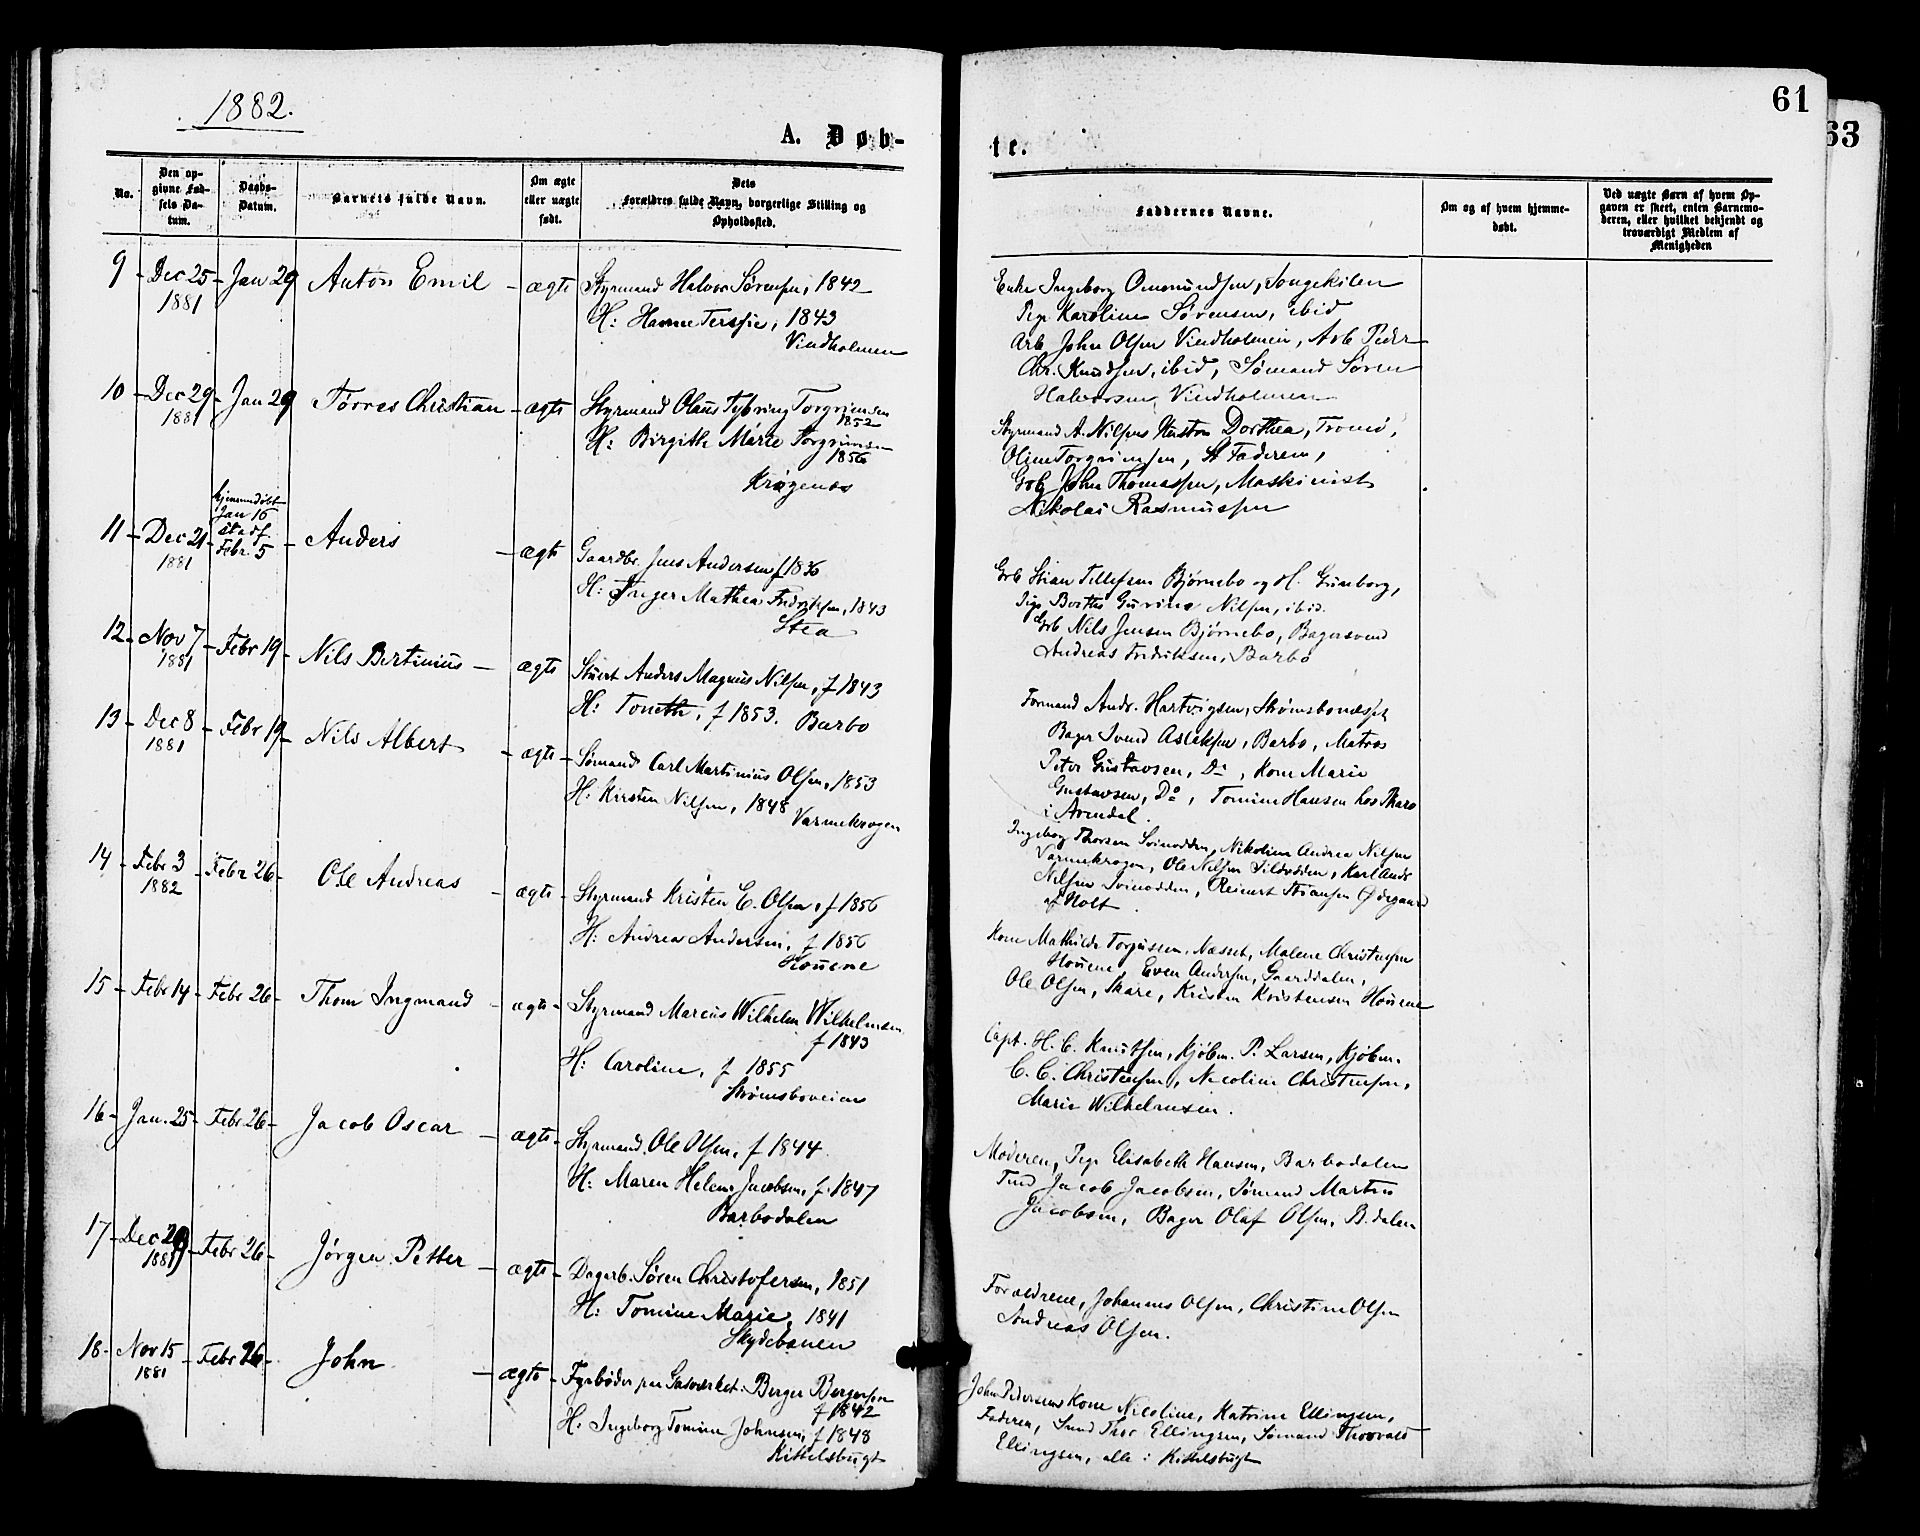 1882.
61
63
A. Døb-
te.
No.
Den op-
givne Fød-
sels Da-
tum.
Daabs-
Datum.
Barnets fulde Navn.
Om ægte
eller uægte
født.
Dets
Forældres fulde Navn, borgerlige Stilling og
Opholdssted.
Faddernes Navne.
Om og af hvem hjemme-
døbt.
Ved uægte Barn af hvem Op-
gaven er skeet, enten Barnemo-
deren, eller hvilket bekjendt og
troværdigt Medlem af
Menigheden
9 - Dec 25 - Jan 29 Anton Emil - ægte Styrmand Halvor Sørensen, 1842
1881
H: Hanne Terssie, 1843
Vindholmen
Enke Ingeborg Omundsen, Songekilen
Pige Karoline Sørensen, ibid
Arb. John Olsen Vindholmen, Arb Peder
Chr. Knudsen, ibid, Sømand Søren
Halvorsen, Vindholmen
10 - Dec 29 - Jan 29 Tørres Christian - ægte Styrmand Olaus Tybring Torgrimsen
1881
1852
H: Birgithe Marie Torgrimsen
1856
Krøgenes
Styrmand A. Nilsens Hustru Dorthea, Tromø,
Oline Torgrimsen, St Faderen,
Grb John Thomassen, Maskinist
Nikolai Rasmussen
11 - Dec 21 - Anders - ægte Gaardbr. Jens Andersen f 1836
1881
hjemmedøbt
Jan 16
stadf.
Febr. 5
H: Inger Mathea Fredriksen, 1843
Stea
Grb Stian Tellefsen Bjørnebo og H. Gunborg,
Pige Berthe Gurine Nilsen, ibid.
Grb Nils Jensen Bjørnebo, Bagersvend
Andreas Fredriksen, Barbo
12 - Nov 7 - Febr 19 - Nils Bertinius - ægte Stuert Anders Magnus Nilsen, f 1843
1881
H: Tomethe, f 1853. Barbo
Formand Andr. Hartvigsen, Strømsbonæsset
Bager Svend Aslaksen, Barbo, Matros
Peter Gustavsen, Do, Kone Marie
Gustavsen, Do, Tomine Hansen hos Skare
i Arendal.
13 - Dec 8 - Febr 19 - Nils Albert - ægte - Sømand Carl Martinius Olsen, 1853
1881
H: Kirsten Nilsen, 1848
Varmekrogen
Ingeborg Thorsen Svinodden, Nikoline Andrea Nilsen
Varmekrogen, Ole Nilsen Sildodden, Karl Andr
Nilsen Svinodden, Reinert Stiansen Ødegaard
af Holt.
14 - Febr 3 - Febr 26 - Ole Andreas - ægte - Styrmand Kristen E. Olsen, f 1856
1882
H: Andrea Andersen, f 1856
Houene
Kone Mathilde Torjussen, Næsset, Malene Christensen
Houene, Even Andersen, Gaarddalen,
Ole Olsen, Skare, Kristen Kristensen Houene
15 - Febr 14 - Febr 26 - Thom Ingmand - ægte - Styrmand Marcus Wilhelm Wilhelmsen
f 1843
H: Caroline, f 1855
Strømsboveien
Capt. H. C. Knutsen, Kjøbm. P. Larsen, Kjøbm.
C. C. Christensen, Nicoline Christensen,
Marie Wilhelmsen.
16 - Jan. 25 - Febr 26 - Jacob Oscar - ægte - Styrmand Ole Olsen, f 1844
H: Maren Helene Jacobsen, f. 1847
Barbodalen
Moderen, Pige Elisabeth Hansen, Barbodalen
Jacob Jacobsen, Sømand Martin
Jacobsen, Bager Olaf Olsen, B.dalen
17 - Dec 29 - Febr 26 - Jørgen Petter - ægte - Dagarb. Søren Christofersen, 1851
1881
H: Tomine Marie, 1841
Skydebanen
Forældrene, Johannes Olsen, Christine Olsen
Andreas Olsen.
18 - Nov 15 - Febr 26 - John - ægte - Fyrbøder paa Gasværket Berger Bergersen
1881
f 1842
H: Ingeborg Tomine Johnsen, f 1848
Kittelsbugt
John Pedersens Kone Nicoline, Katrine Ellingsen,
Faderen, Smed Thor Ellingsen, Sømand Thorvald
Ellingsen, alle i Kittelsbugt